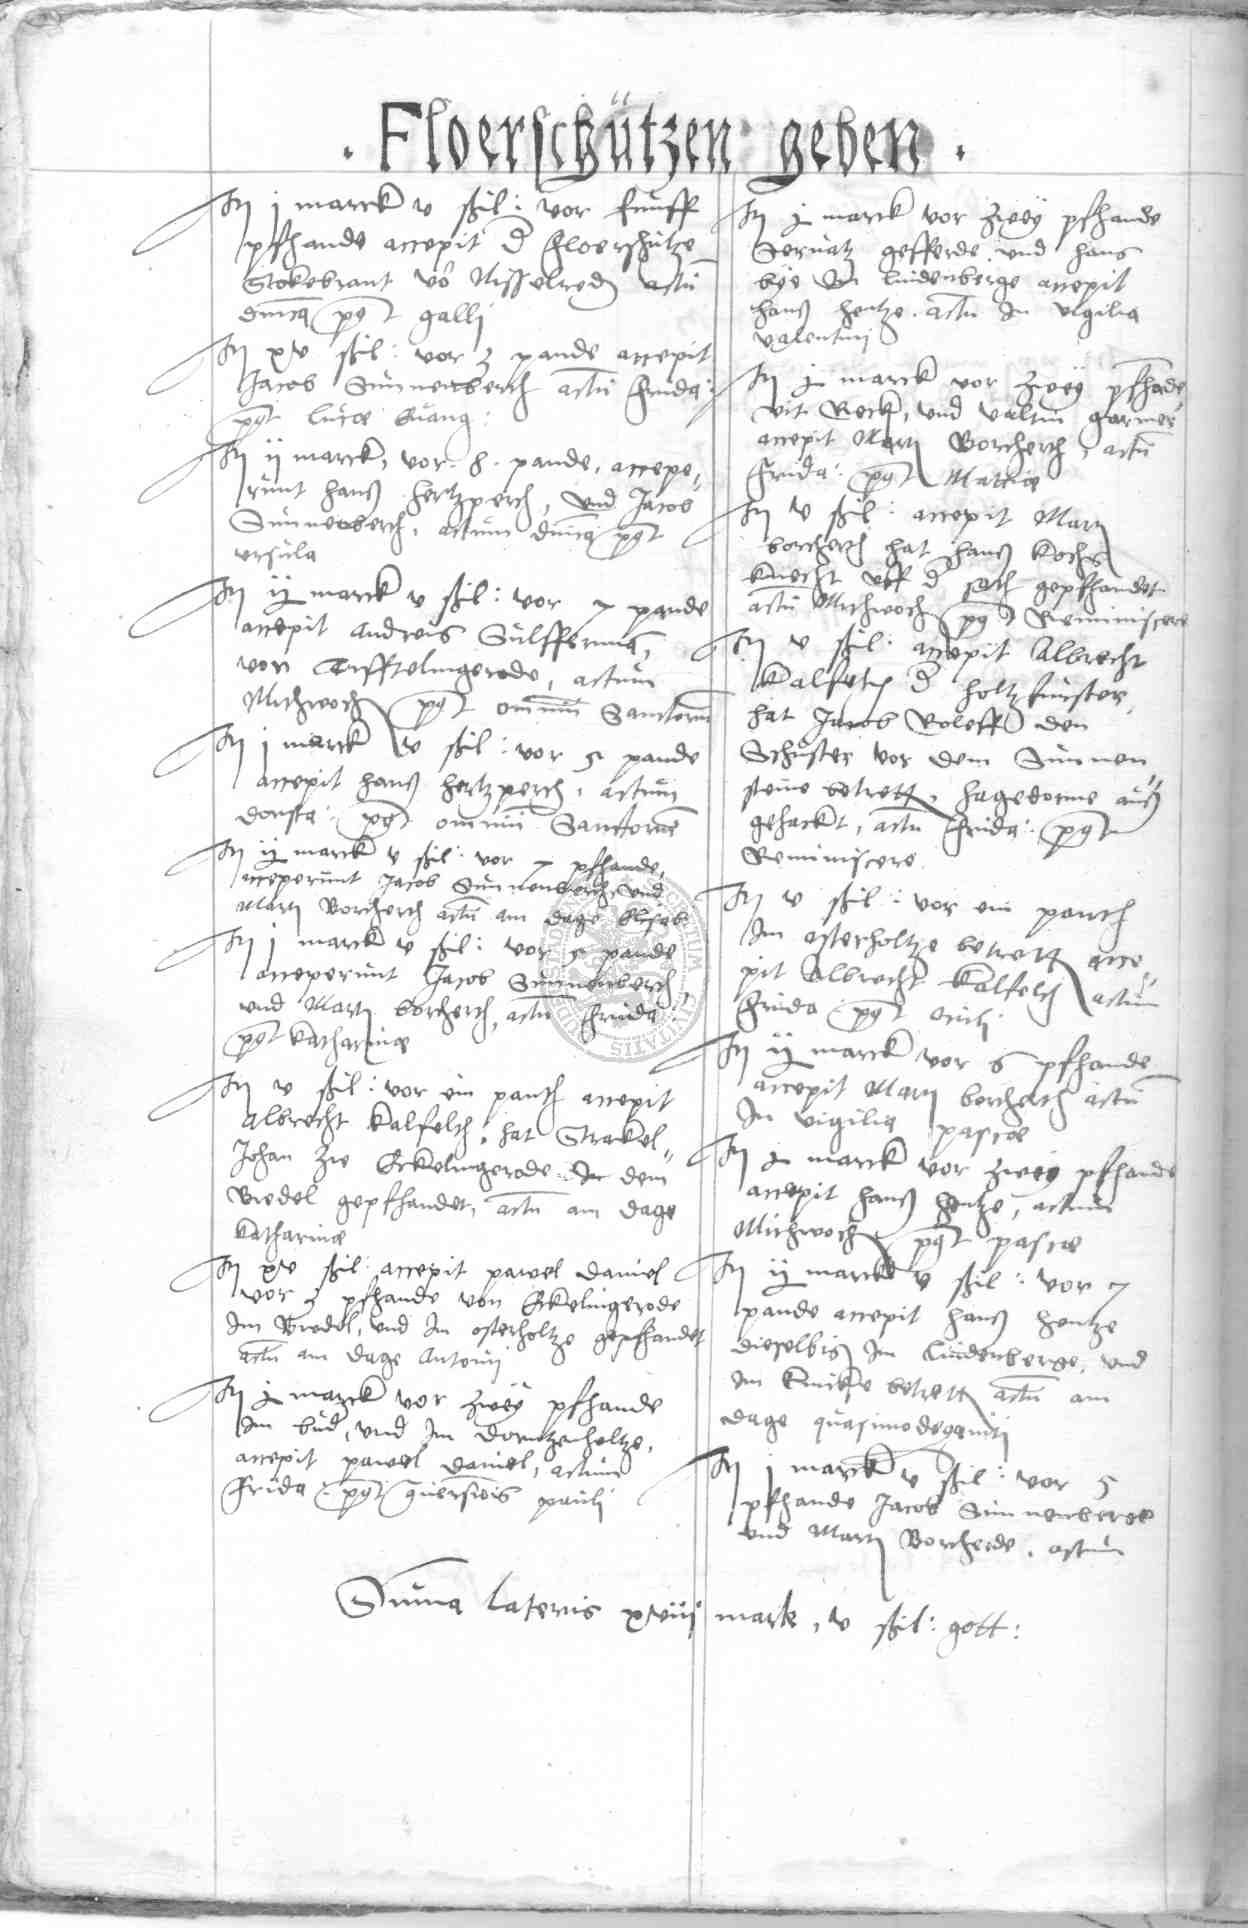 . Floerschützen geben .
It j marck v ßil: vor funff
pfhande accepit d Floerschutze
Stokebrant vō Nisselred actū
dnica pꝯt galli
It xv ßil: vor 3 pande accepit
Jacob Sunnenberch actū frida:
pꝯt luce Euang:
It ij marck, vor 8. pande, accepe,
runt hanß hertzperch, und Jacob
Sunnenberch, actum dnica pꝯt
ursula
It ij marck v ßil: vor 7 pande
accepit Andreis Sulfferman,
von Tifftelingerode, actum
Mithwoch pꝯt omniū Sanctorū
It j marck v ßil: vor 5 pande
accepit hanß hertzperch, actum
donsta: pꝯt omniū Sanctorū
It ij marck v ßil: vor 7 pfhande,
acceperunt Jacob Sunnenberch und
Marti Borcherch actū am dage Elisab:
It j marck v ßil: vor 5 pande
acceperunt Jacob Sunnenberch,
und Marti borcherch, actū frida:
pꝯt katharine
It v ßil: vor ein panth accepit
Albrecht kalfelth, hat Strakel,,
Johan zie Eckelingerode In dem
Bredel gepfhandet, actū am dage
katharine
It xv ßil: accepit pawel daniel
vor 3 pfhande von Eckelingerode
Im Bredel, und Im osterholtze gepfhandet
actū am dage Antonij
It j marck vor zweÿ pfhande
Im bud, und Im dorntzenholtze,
accepit pawel daniel, actum
Frida: pꝯt quersiois pauli
It j marck vor zweÿ pfhande
Servatz gefferde und hans
bÿe Im lindenberge accepit
hanß hentze. actū In vigilia
valentini
It j marck vor zweÿ pfhade,
vit Reck, und valtin garmer
accepit Marti Borcherch, actū
Frida: pꝯt Mathie
It v ßil: accepit Marti
borcherch hat hanß kochs
knecht uff d sath gepfhandet
actū Mithwoch pꝯt Reminiscere
It v ßil: accepit Albrecht
kalfelt d holtzfurster,
hat Jacob Roleff den
Schuster vor dem Sunnen
steine betrett, hagedorne auß,,
gehackt, actū frida: pꝯt
Reminiscere
It v ßil: vor ein panth
Im osterholtze betrett acce,,
pit Albrecht kalfelth actum
Frida: pꝯt oculi
It ij marck vor 6 pfhande
accepit Marti borcherch actū
In vigilia pasce
It j marck vor zweÿ pfhande
accepit hanß hentze, actum
Mithwoch pꝯt pasce
It ij marck v ßil: vor 7
pande accepit hanß hentze
dieselbig Im lindenberge, und
Im knicke betrett actū am
dage quasimodogeniti
It j marck v ßil: vor 5
pfhande Jacob Sunnenberge
und Marti Borcherde, actum
Suma lateris xviij mark, v ßil: gott: